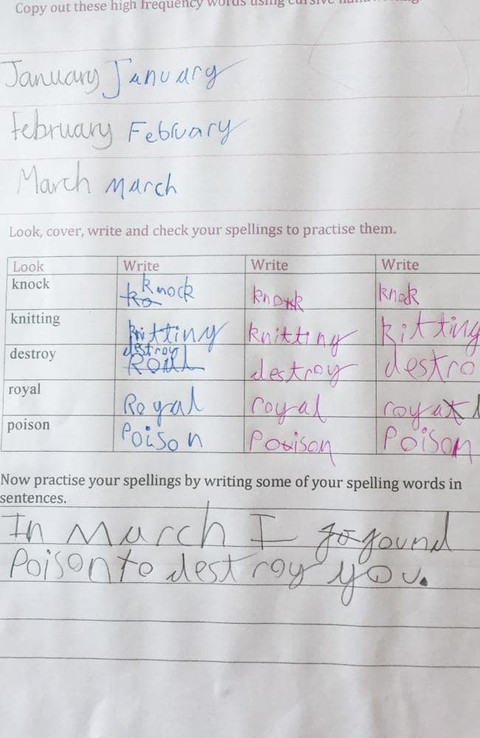 Copy out these high frequency words using cursive handwriting
January January
February February
March March
Look, cover, write and check your spellings to practise them.
Look Write Write Write
knock ko knock knok knok
knitting knittiny knitting kitting
destroy destroy destroy destro
royal Royal royal royal
poison Poison Poison Poison
Now practise your spellings by writing some of your spelling words in
sentences.
In March I go found
Poison to destroy you.